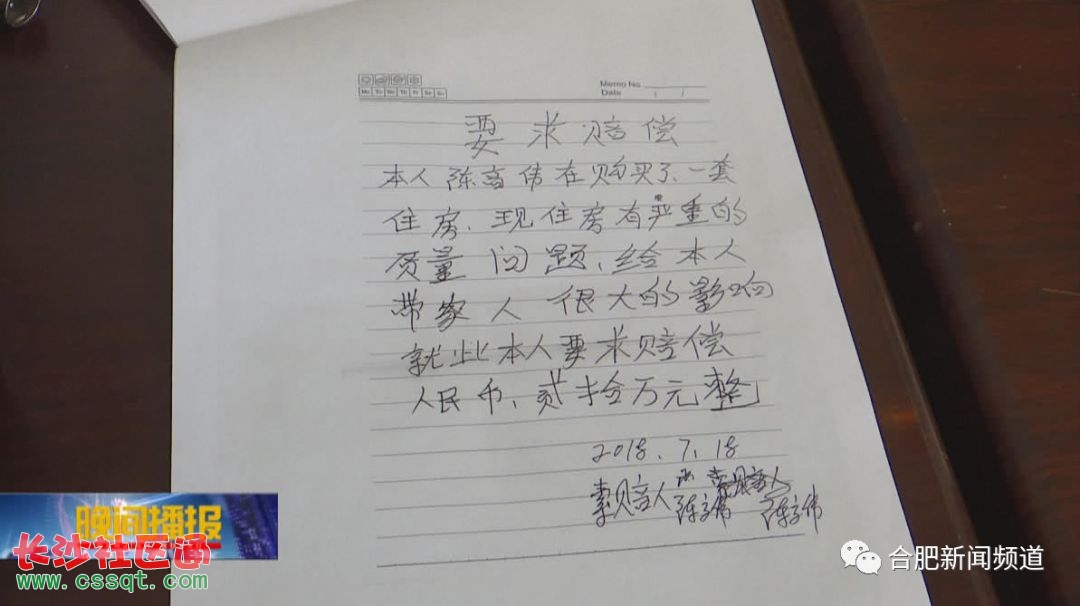 Memo No.
Date / /
Mo Tu We Th Fr Sa Su
要求赔偿
本人陈高伟在购买了、一套
住房、现住房有严重的
质量问题、给本人
带家人很大的影响
就此本人要求赔偿
人民币、贰拾万元整
2018.7.18
索赔人
陈高伟 陈高伟
晚间播报
长沙社区通
www.cssqt.com
合肥新闻频道